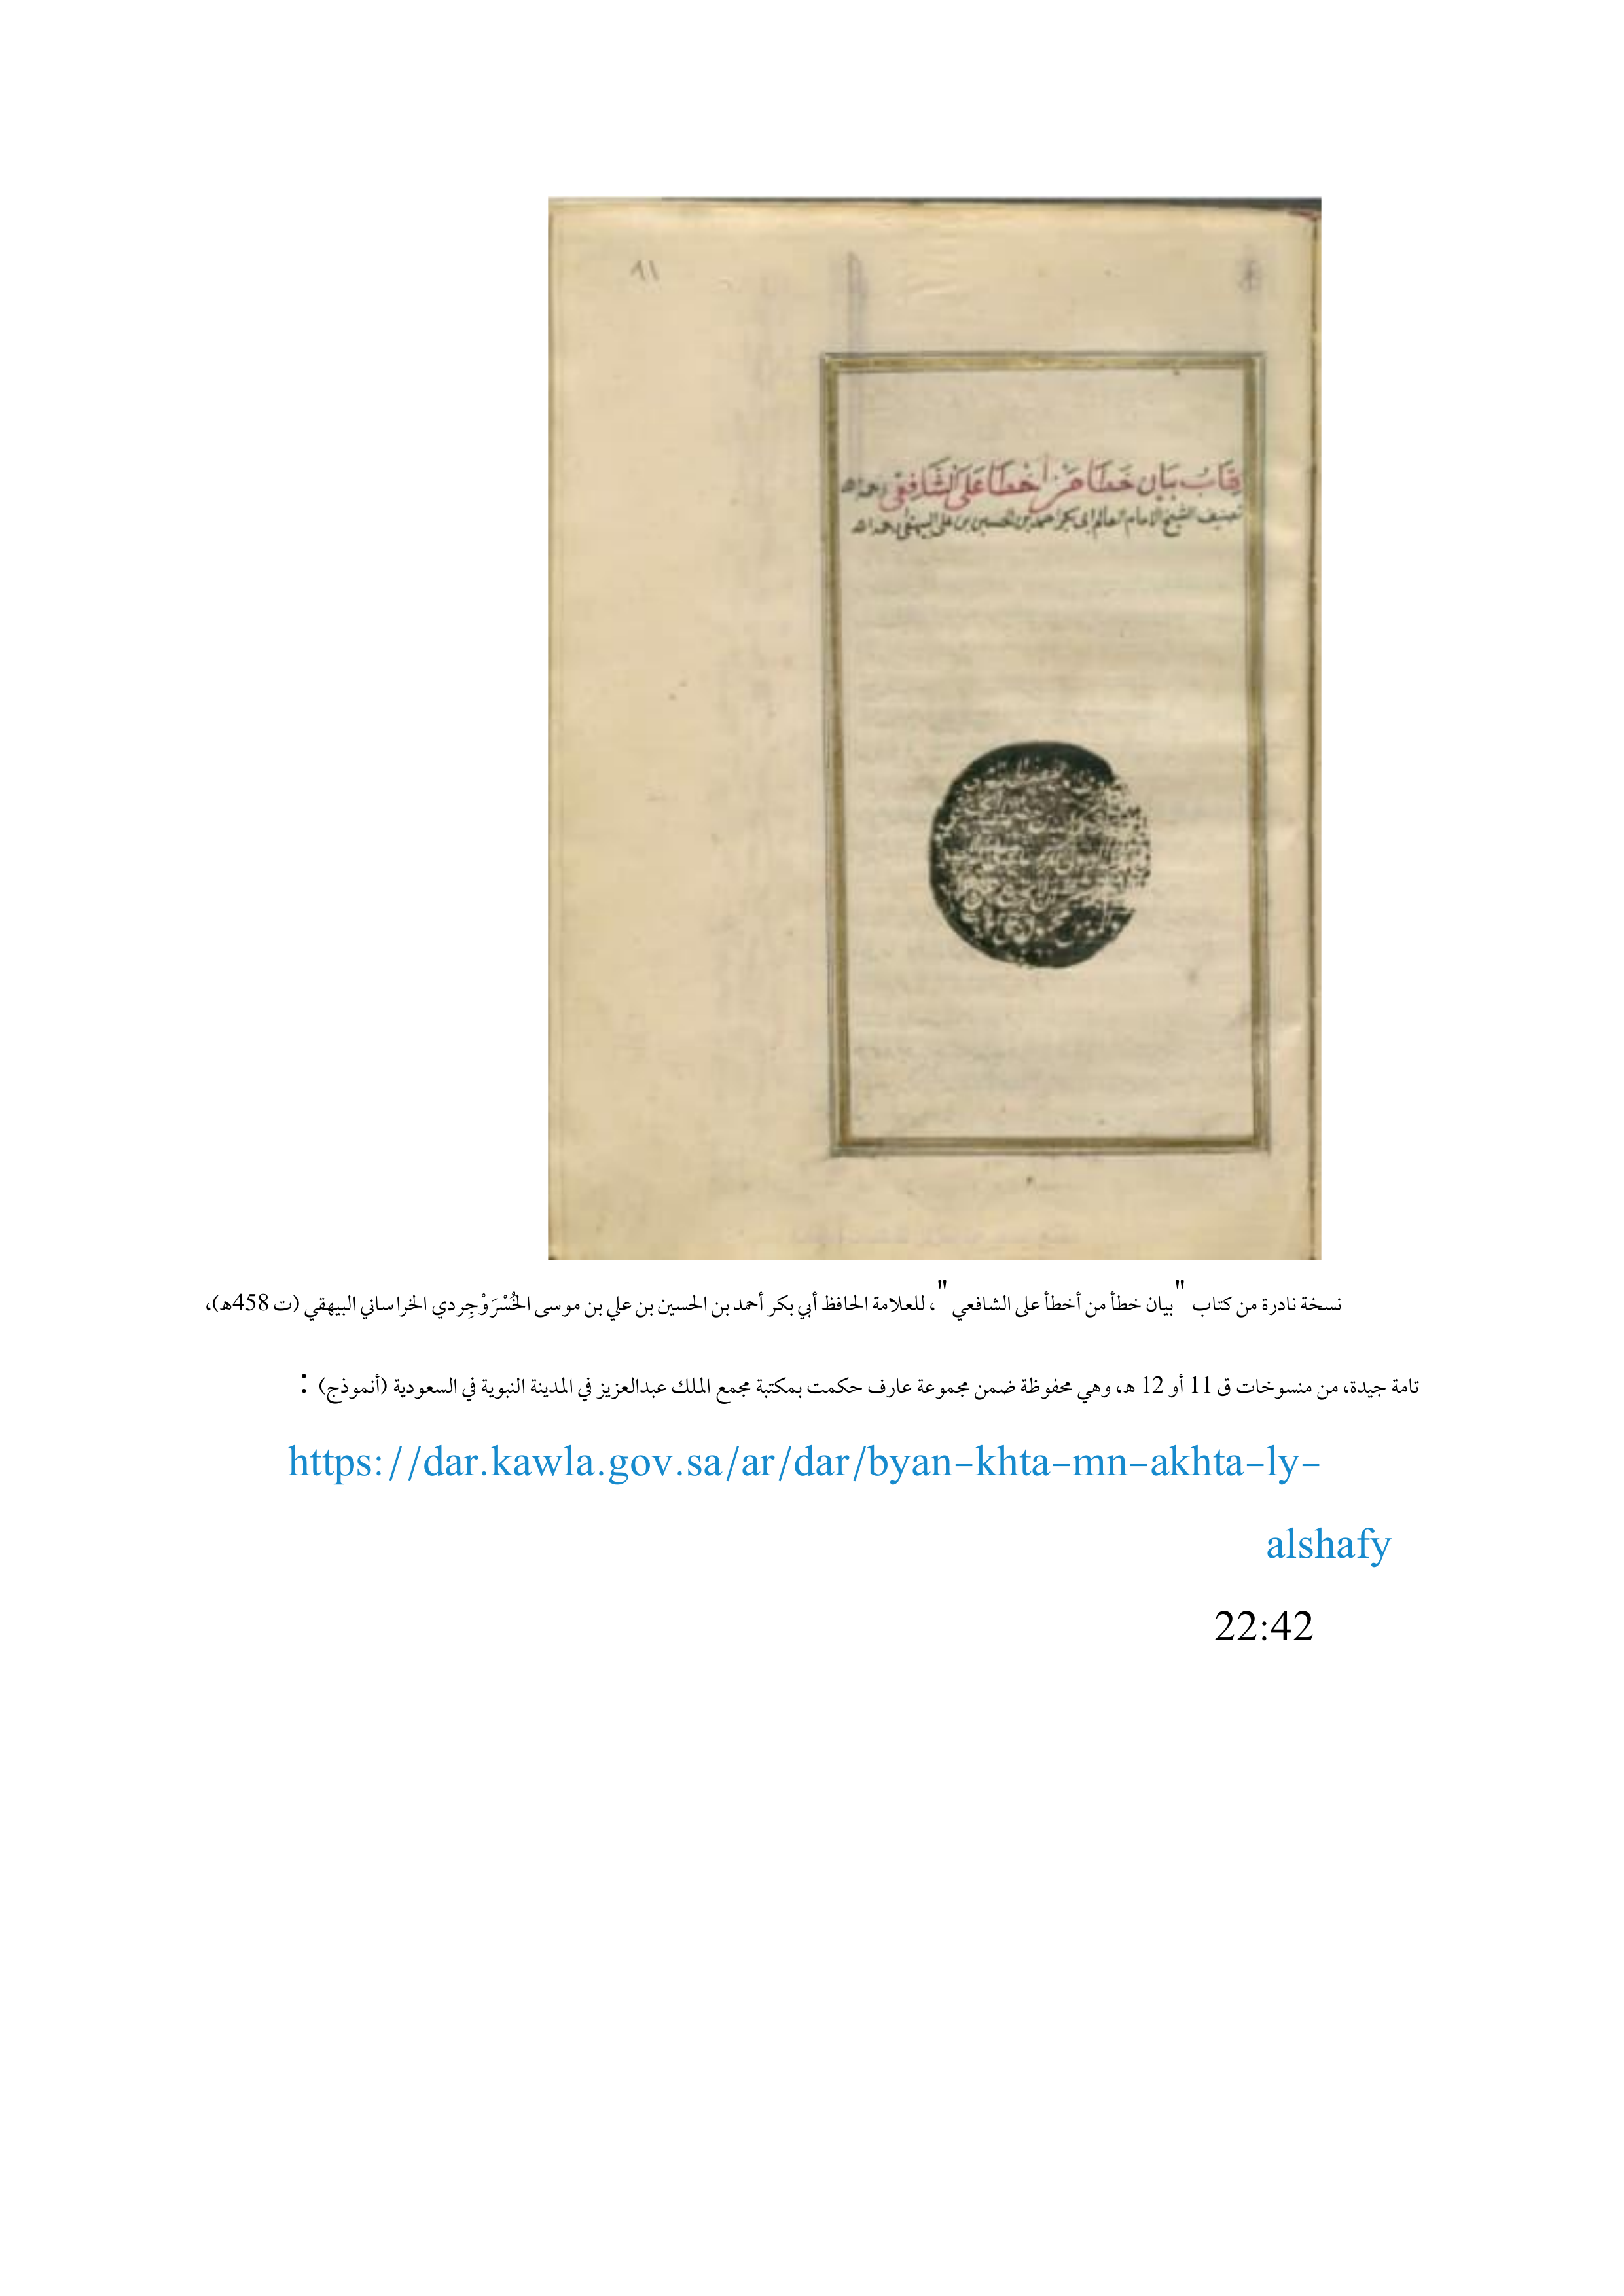 ٩١
كتاب بيان خطا من اخطا على الشافعي رحمه الله
تصنيف الشيخ الامام العالم ابى بكر احمد بن الحسين بن على البيهقى رحمه الله
نسخة نادرة من كتاب "بيان خطأ من أخطأ على الشافعي"، للعلامة الحافظ أبي بكر أحمد بن الحسين بن علي بن موسى الخُسْرَوْجِردي الخراساني البيهقي (ت 458هـ)،
تامة جيدة، من منسوخات ق 11 أو 12 هـ، وهي محفوظة ضمن مجموعة عارف حكمت بمكتبة مجمع الملك عبدالعزيز في المدينة النبوية في السعودية (أنموذج) :
https://dar.kawla.gov.sa/ar/dar/byan-khta-mn-akhta-ly-
alshafy
22:42